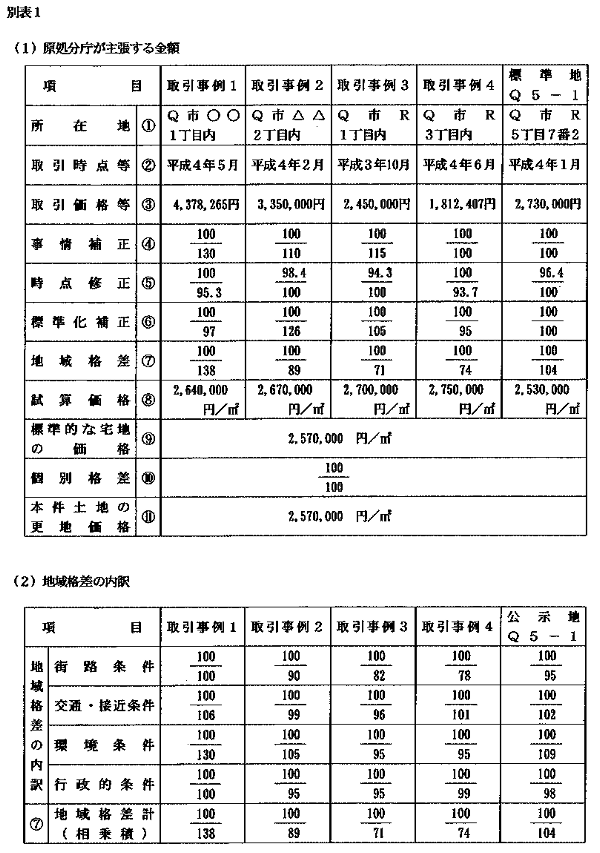 別表1
(1)原処分庁が主張する金額
項目 取引事例1 取引事例2 取引事例3 取引事例4 標準地 Q5-1
所在地 ① Q市○○1丁目内 Q市△△2丁目内 Q市R1丁目内 Q市R3丁目内 Q市R5丁目7番2
取引時点等 ② 平成4年5月 平成4年2月 平成3年10月 平成4年6月 平成4年1月
取引価格等 ③ 4,378,265円 3,350,000円 2,450,000円 1,812,407円 2,730,000円
事情補正 ④ 100/130 100/110 100/115 100/100 100/100
時点修正 ⑤ 100/95.3 98.4/100 94.3/100 100/93.7 96.4/100
標準化補正 ⑥ 100/97 100/126 100/105 100/95 100/100
地域格差 ⑦ 100/138 100/89 100/71 100/74 100/104
試算価格 ⑧ 2,640,000円/㎡ 2,670,000円/㎡ 2,700,000円/㎡ 2,750,000円/㎡ 2,530,000円/㎡
標準的な宅地の価格 ⑨ 2,570,000 円/㎡
個別格差 ⑩ 100/100
本件土地の更地価格 ⑪ 2,570,000 円/㎡
(2)地域格差の内訳
項目 取引事例1 取引事例2 取引事例3 取引事例4 公示地 Q5-1
地域格差の内訳
街路条件 100/100 100/90 100/82 100/78 100/95
交通・接近条件 100/106 100/99 100/96 100/101 100/102
環境条件 100/130 100/105 100/95 100/95 100/109
行政的条件 100/100 100/95 100/95 100/99 100/98
⑦ 地域格差計(相乗積) 100/138 100/89 100/71 100/74 100/104